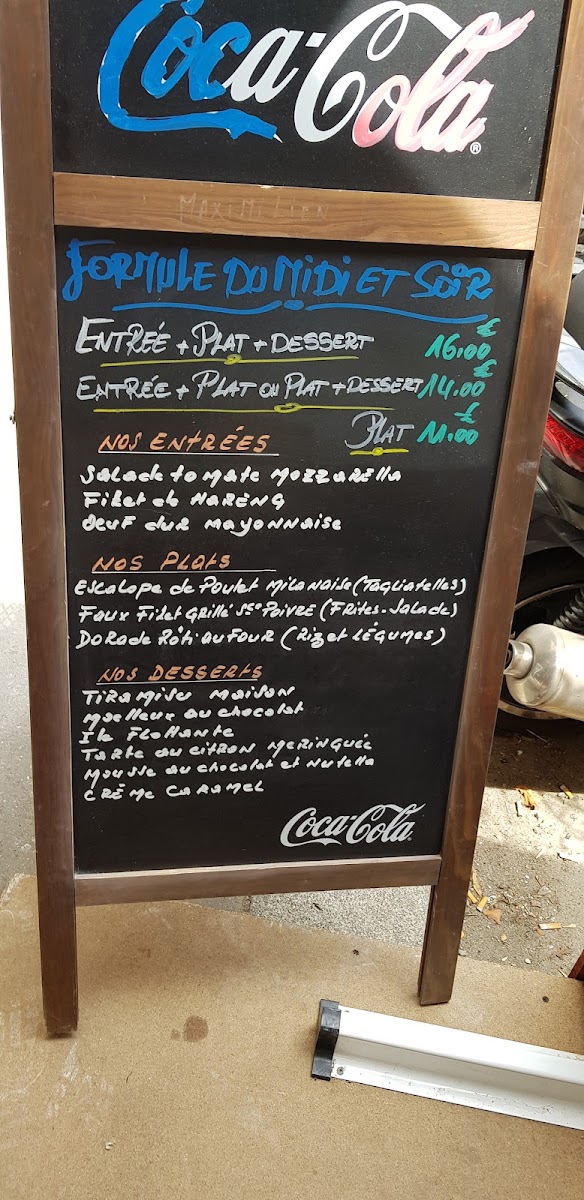 Coca-Cola®
MAXIMILIEN
FORMULE DU MIDI ET SOIR
ENTREÉ + PLAT + DESSERT 16.00 €
ENTRÉE + PLAT OU PLAT + DESSERT 14.00 €
PLAT 11.00 €
NOS ENTRÉES
Salade tomate MOZZARElla
Filet de HARENG
Oeuf dur mayonnaise
NOS PLATS
Escalope de Poulet Milanaise (Tagliatelles)
Faux Filet Grillé Sce Poivre (Frites-Salade)
Dorade Rôti au Four (Riz et Légumes)
NOS DESSERTS
Tiramisu maison
Moelleux au chocolat
Ile Flottante
Tarte au citron meringuée
Mousse au chocolat et nutella
CRÈME CARAMEL
Coca-Cola